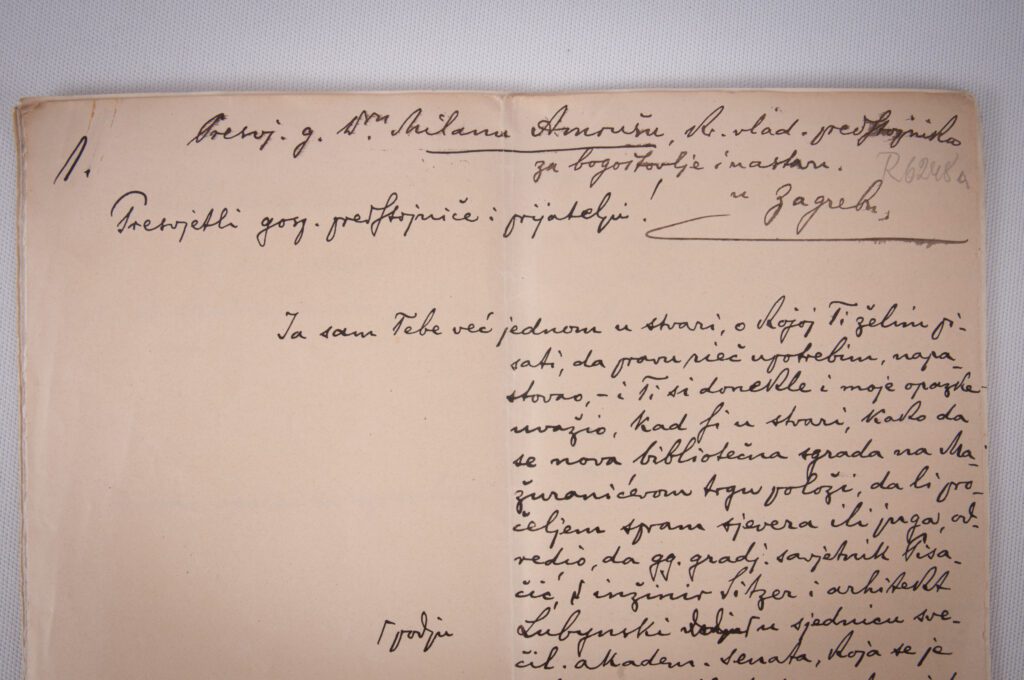 1.
Presvj. g. Drn Milanu Amrušu, kr. vlad. predstojniku
za bogoštovlje i nastavu.
R6248a
u Zagrebu,
Presvjetli gosp. predstojniče i prijatelju!
Ja sam Tebe već jednom u stvari, o kojoj Ti želim pi-
sati, da pravu rieč upotrebim, napa-
stovao, - i Ti si donekle i moje opazke
uvažio, kad si u stvari, kako da
se nova bibliotečna sgrada na Ma-
žuranićevom trgu položi, da li pro-
čeljem spram sjevera ili juga, od-
redio, da gg. gradj. savjetnik Pisa-
čić, inžinir Sitzer i arhitekt
Lubynski u sjednicu sve-
podju
čil. akadem. senata, koja se je